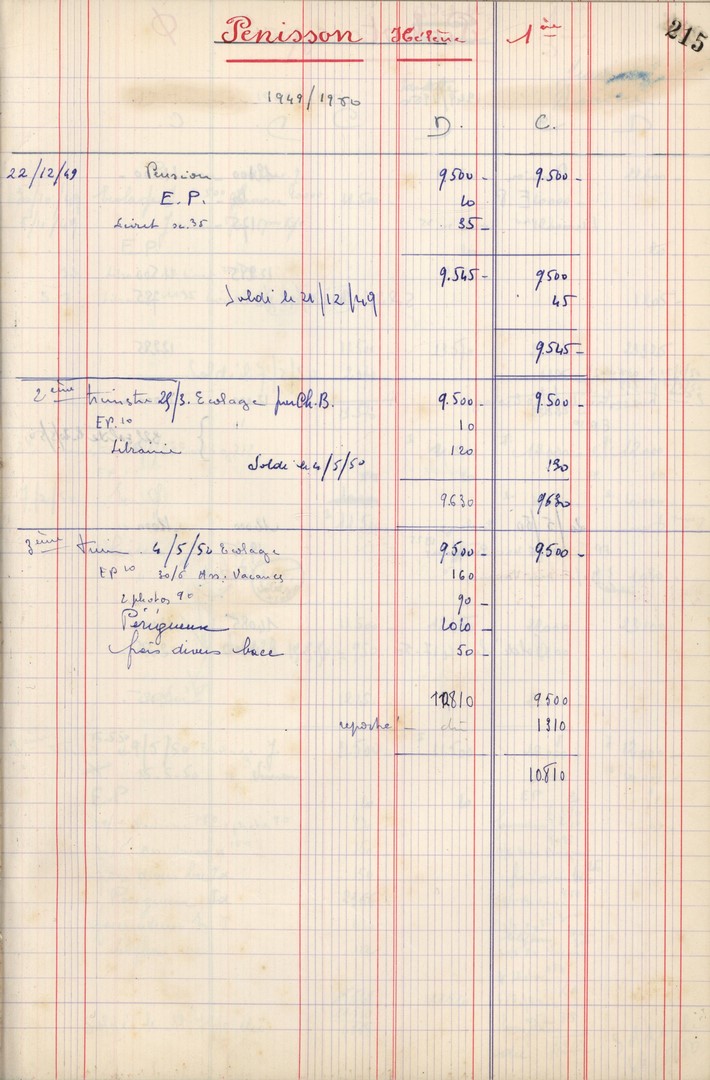 Penisson Hélène 1ère 215
1949/1950
D. C.
22/12/49 Pension 9.500 - 9.500 -
E.P. 10
Livret sc. 35 35 -
9.545 - 9500
Soldé le 21/12/49 45
9.545 -
2ème trimestre 25/3. Ecolage par Ch.B. 9.500 - 9.500 -
EP. 10 10
Librairie 120
Soldé le 4/5/50 130
9.630 9630
3ème trim 4/5/50 Ecolage 9.500 - 9.500 -
EP 10 30/6 Ass. Vacances 160
2 photos 90 90 -
Périgueux 1010 -
frais divers bacc 50 -
10810 9500
reporté - dû 1310
10810